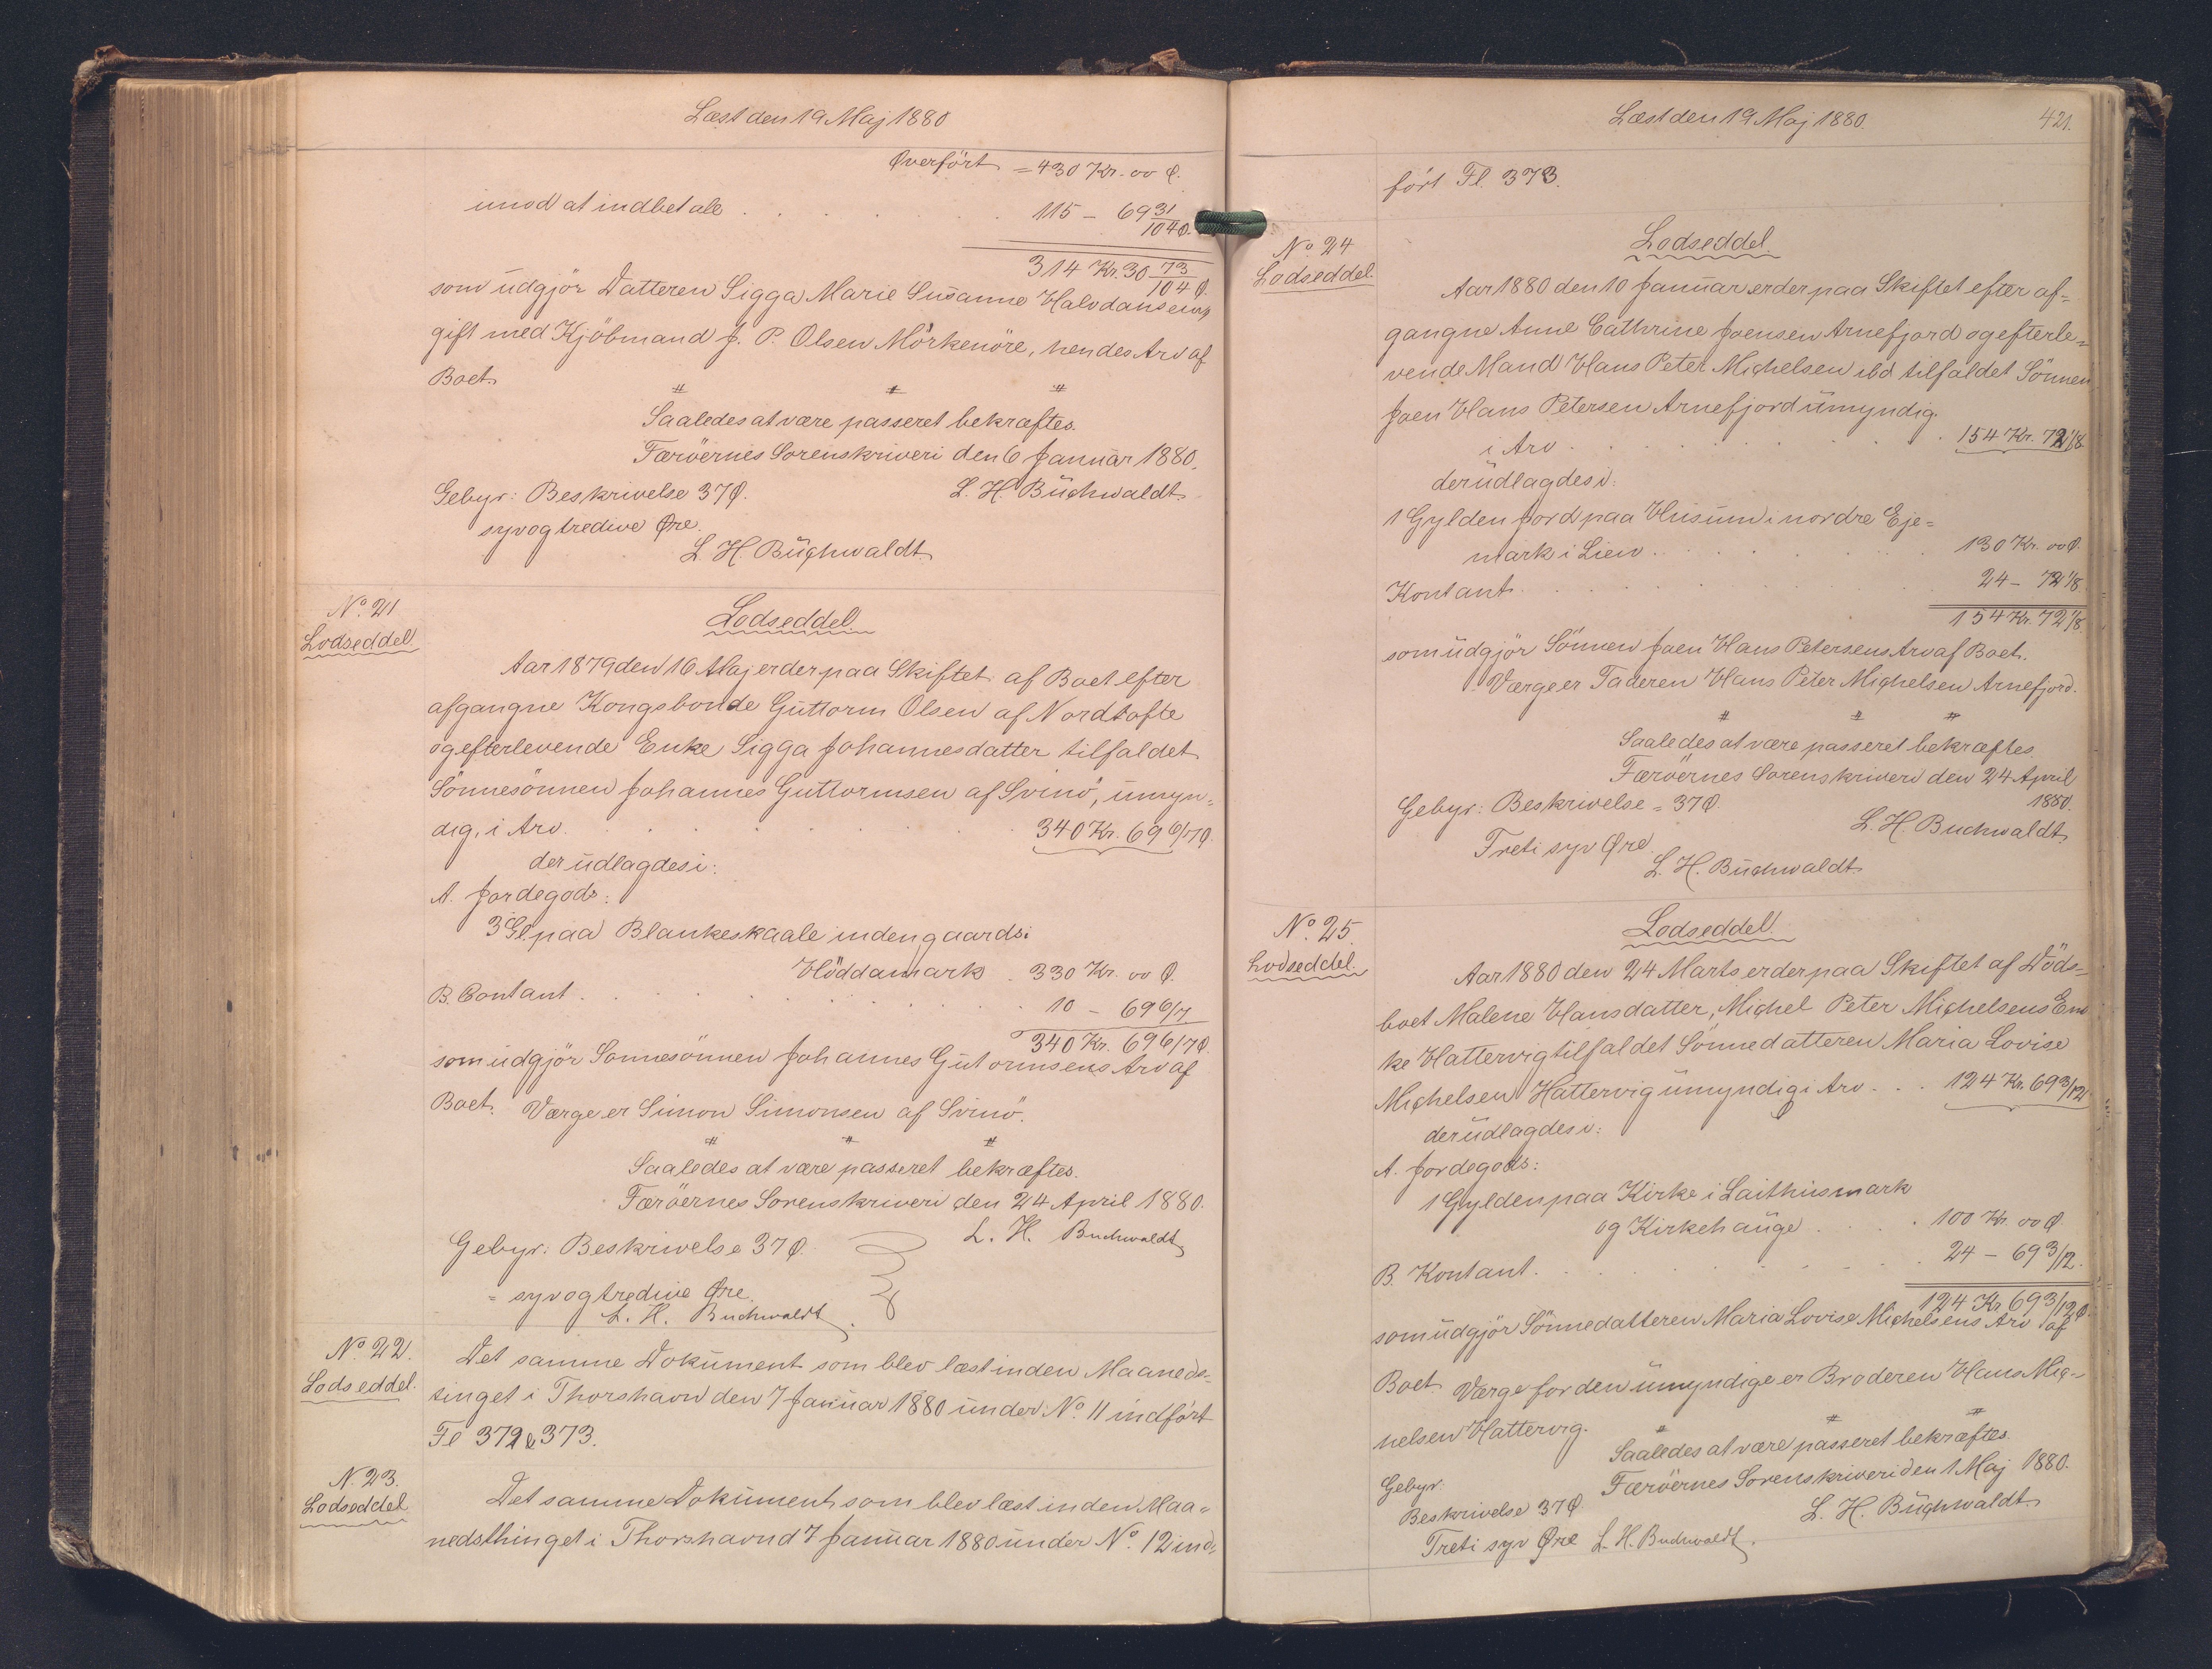 Læst den 19 Maj 1880
Overført = 430 Kr. 00 Ø.
imod at indbetale . . . . . . 115 - 69 31/104 Ø.
314 Kr. 30 73/104 Ø.
som udgjör Datteren Sigga Marie Susanne Halvdansens
gift med Kjöbmand J. P. Olsen Mörkenöre, hendes Arv af
Boet.
Saaledes at være passeret bekræftes.
Færöernes Sorenskriveri den 6 Januar 1880.
Gebyr: Beskrivelse 37 Ø. L. H. Buchwaldt
syvogtredive Øre.
L. H. Buchwaldt
No. 21
Lodseddel
Lodseddel
Aar 1879 den 16 Maj er der paa Skiftet af Boet efter
afgangne Kongsbonde Guttorm Olsen af Nordtofte
og efterlevende Enke Sigga Johannesdatter tilfaldet
Sönnesönnen Johannes Guttormsen af Svinö, umyn=
dig, i Arv . . . . . . 340 Kr. 69 6/7 Ø.
der udlagdes i:
A. Jordegods:
3 Gl paa Blankeskaale indengaards i
Höddamark . 330 Kr. 00 Ø.
B. Contant . . . . . . 10 - 69 6/7
340 Kr. 69 6/7 Ø.
som udgjör Sönnesönnen Johannes Gutormsens Arv af
Boet. Værge er Simon Simonsen af Svinö.
Saaledes at være passeret bekræftes.
Færöernes Sorenskriveri den 24 April 1880.
Gebyr: Beskrivelse 37 Ø. L. H. Buchwaldt
= syvogtredive Øre.
L. H. Buchwaldt
No. 22.
Lodseddel.
Det samme Dokument som blev læst inden Maaneds=
tinget i Thorshavn den 7 Januar 1880 under No. 11 indfört
Fl 372 & 373.
N. 23.
Lodseddel
Det samme Dokument som blev læst inden Maa=
nedsthinget i Thorshavn d 7 Januar 1880 under No. 12 ind=
Læst den 19 Maj 1880. 421.
fört Fl. 373.
No. 24
Lodseddel.
Lodseddel.
Aar 1880 den 10 Januar er der paa Skiftet efter af=
gangne Anne Cathrine Joensen Arnefjord og efterle=
vende Mand Hans Peter Michelsen ibd tilfaldet Sönnen
Joen Hans Petersen Arnefjord umyndig.
i Arv . . . . . . 154 Kr. 72 1/8
der udlagdes i:
1 Gylden Jord paa Husum i nordre Eje=
mark i Lien . . . . . 130 Kr. 00 Ø.
Kontant . . . . . . 24 - 72 1/8
154 Kr. 72 1/8
som udgjör Sönnen Joen Hans Petersens Arv af Boet.
Værge er Faderen Hans Peter Michelsen Arnefjord.
Saaledes at være passeret bekræftes
Færöernes Sorenskriveri den 24 April
1880.
Gebyr: Beskrivelse = 37 Ø. L. H. Buchwaldt
Treti syv Øre.
L. H. Buchwaldt
No. 25.
Lodseddel.
Lodseddel
Aar 1880 den 24 Marts er der paa Skiftet af Döds=
boet Malene Hansdatter, Michel Peter Michelsens En=
ke Hattervig tilfaldet Sönnedatteren Maria Lovise
Michelsen Hattervig umyndig i Arv . . . 124 Kr. 69 3/12
der udlagdes i:
A. Jordegods:
1 Gylden paa Kirke i Laithusmark
og Kirkehauge . . . . 100 Kr. 00 Ø.
B. Kontant . . . . . . 24 - 69 3/12.
124 Kr. 69 3/12 Ø.
som udgjör Sönnedatteren Maria Lovise Michelsens Arv af
Boet. Værge for den umyndige er Broderen Hans Mic=
helsen Hattervig.
Saaledes at være passeret bekræftes.
Gebyr. Færöernes Sorenskriveri den 1 Maj 1880.
Beskrivelse 37 Ø. L. H. Buchwaldt
Treti syv Øre L. H. Buchwaldt.